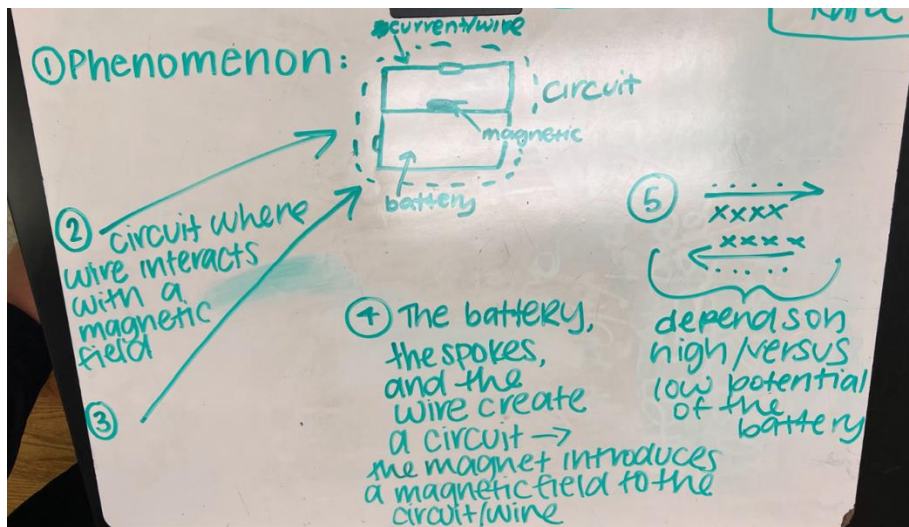 ① Phenomenon:
current/wire
circuit
magnetic
battery
② circuit where
wire interacts
with a
magnetic
field
③
④ The battery,
the spokes,
and the
wire create
a circuit →
the magnet introduces
a magnetic field to the
circuit/wire
⑤
xxxx
xxxx
depends on
high/versus
low potential
of the
battery